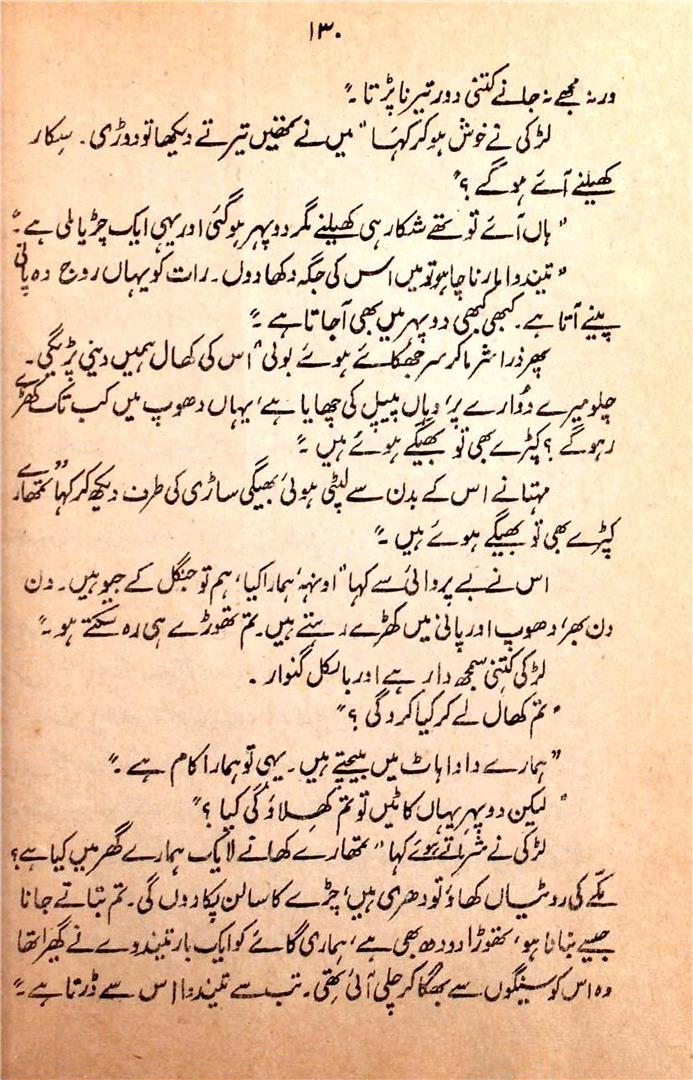 ۱۳۰
ورنہ مجھے نہ جانے کتنی دور تیرنا پڑتا۔"
لڑکی نے خوش ہو کر کہا "میں نے تمھیں تیرتے دیکھا تو دوڑی۔ سکار
کھیلنے آئے ہوگے؟"
"ہاں آئے تو تھے شکار ہی کھیلنے مگر دوپہر ہوگئی اور یہی ایک چڑیا ملی ہے۔"
"تیندوا مارنا چاہو تو میں اس کی جگہ دکھا دوں۔ رات کو یہاں روج وہ پانی
پینے آتا ہے۔ کبھی کبھی دوپہر میں بھی آجاتا ہے۔"
پھر ذرا شرما کر سر جھکائے ہوئے بولی "اس کی کھال ہمیں دینی پڑیگی۔
چلو میرے دُوارے پر، وہاں پیپل کی چھایا ہے، یہاں دھوپ میں کب تک کھڑے
رہوگے؟ کپڑے بھی تو بھیگے ہوئے ہیں۔"
مہتا نے اس کے بدن سے لپٹی ہوئی بھیگی ساڑی کی طرف دیکھ کر کہا "تمھارے
کپڑے بھی تو بھیگے ہوئے ہیں۔"
اس نے بے پروائی سے کہا "اونہہ، ہمارا کیا، ہم تو جنگل کے جیو ہیں۔ دن
دن بھر، دھوپ اور پانی میں کھڑے رہتے ہیں۔ تم تھوڑے ہی رہ سکتے ہو۔"
لڑکی کتنی سمجھ دار ہے اور بالکل گنوار۔
"تم کھال لے کر کیا کروگی؟"
"ہمارے دادا ہاٹ میں بیچتے ہیں۔ یہی تو ہمارا کام ہے۔"
"لیکن دوپہر یہاں کاٹیں تو تم کھلاؤگی کیا؟"
لڑکی نے شرماتے ہوئے کہا "تمھارے کھانے لایک ہمارے گھر میں کیا ہے؟
مکے کی روٹیاں کھاؤ تو دھری ہیں، چڑے کا سالن پکا دوں گی۔ تم بتاتے جانا
جیسے بنانا ہو، تھوڑا دودھ بھی ہے، ہماری گائے کو ایک بار تیندوے نے گھیرا تھا
وہ اس کو سینگوں سے بھگا کر چلی آئی تھی۔ تب سے تیندوا اس سے ڈرتا ہے۔"